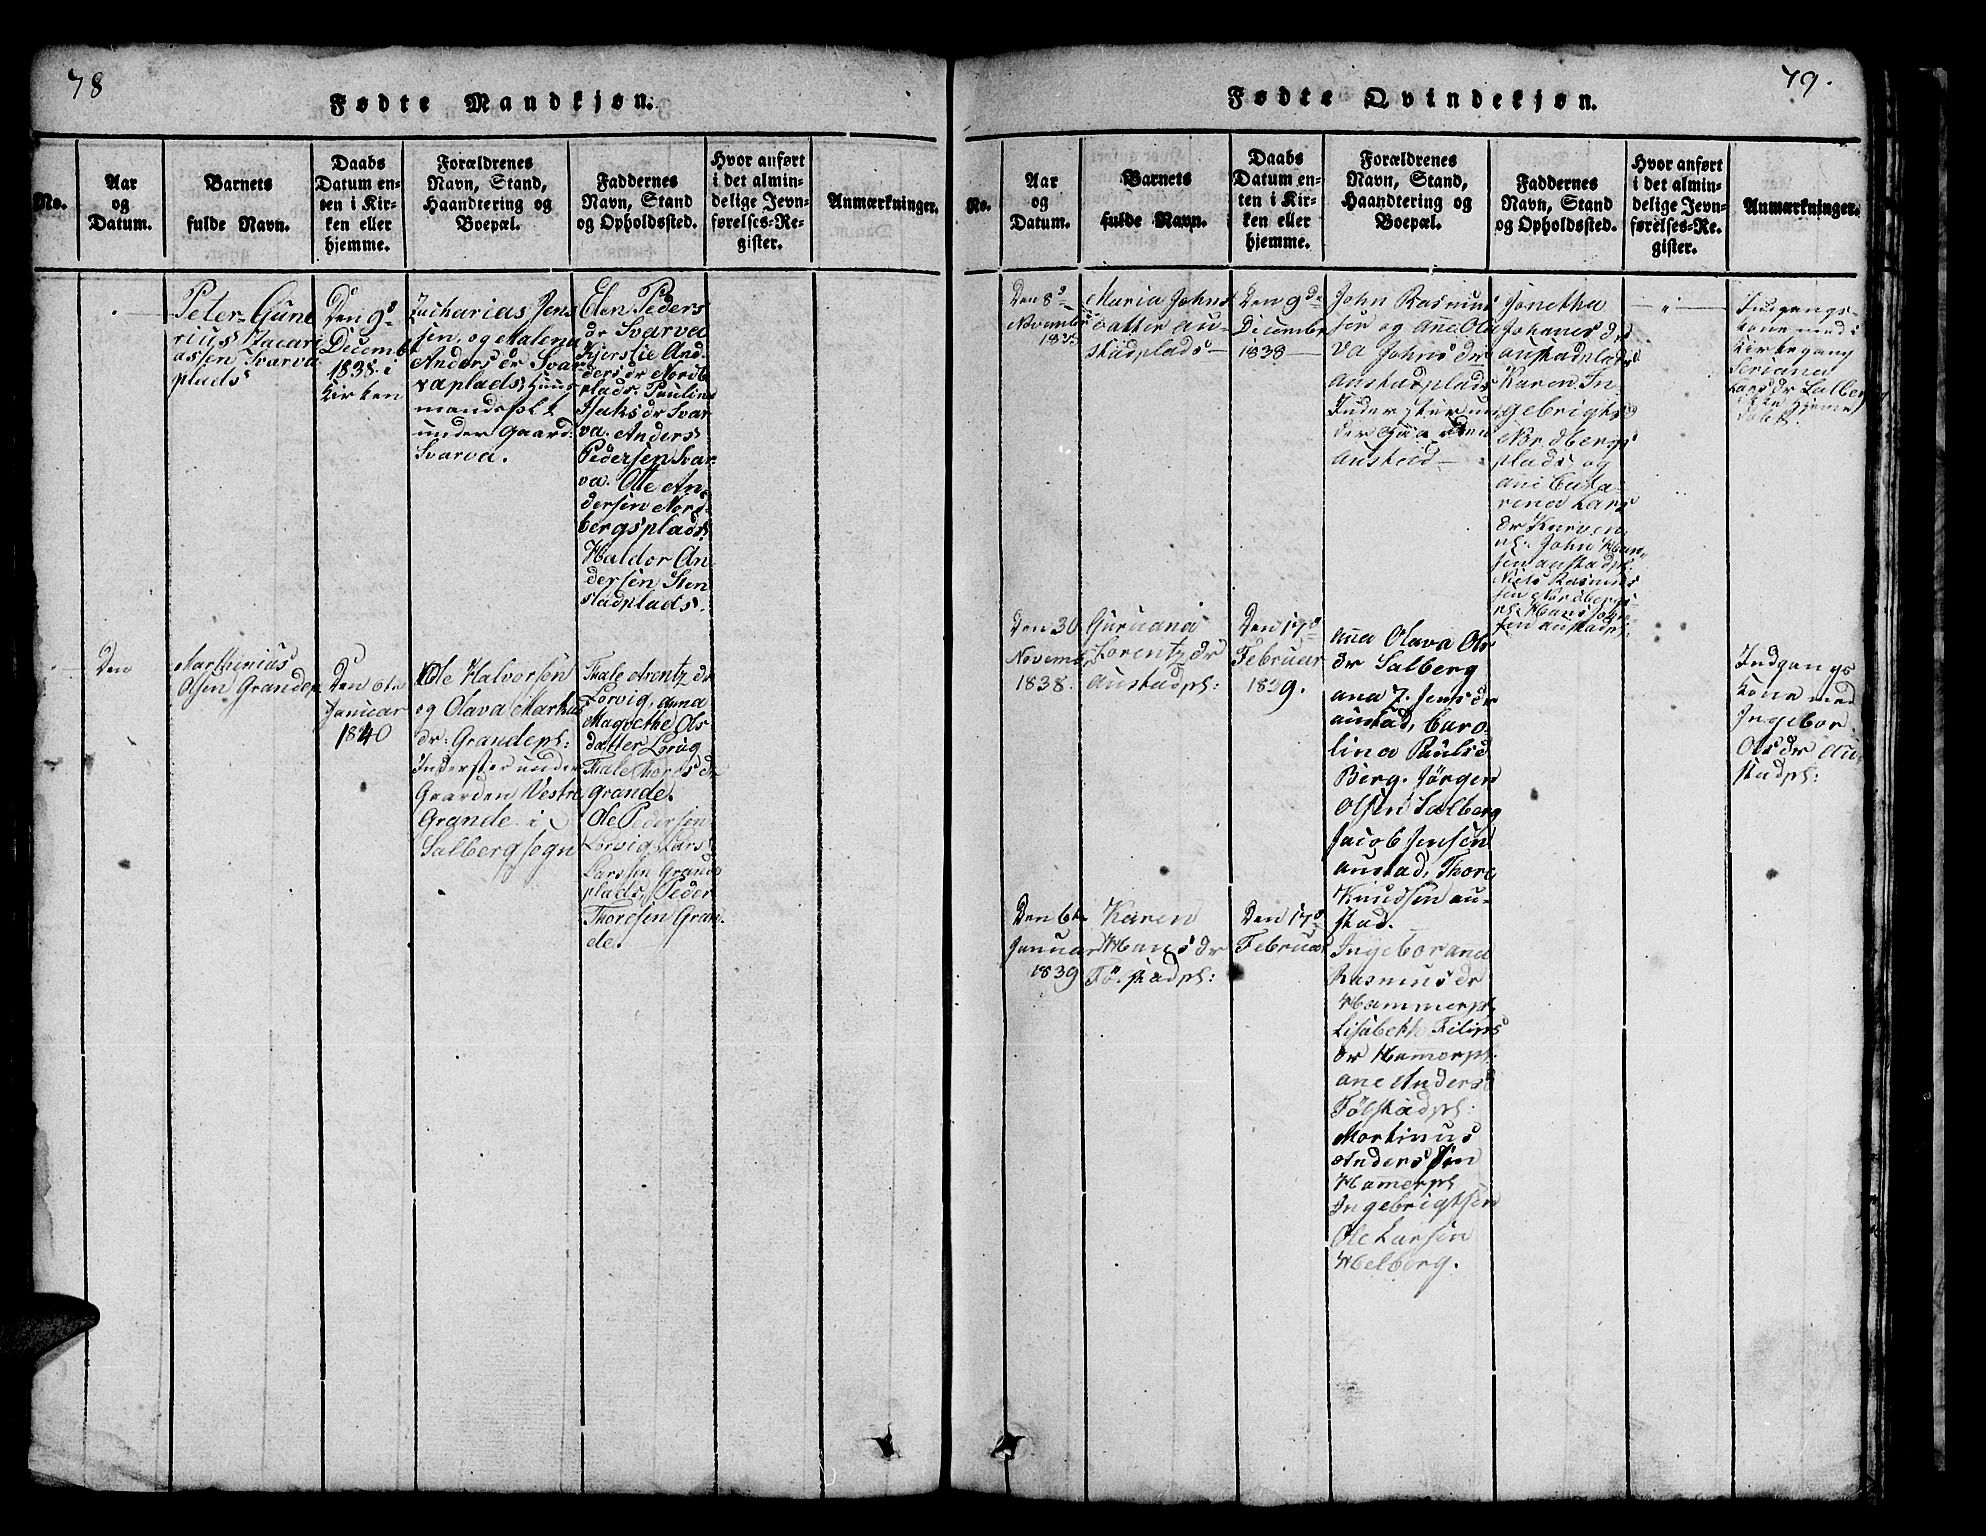 78
Fødte Mandkjøn.
No.
Aar
og
Datum.
Barnets
fulde Navn.
Daabs
Datum en-
ten i Kir-
ken eller
hjemme.
Forældrenes
Navn, Stand,
Haandtering og
Boepæl.
Faddernes
Navn, Stand
og Opholdssted.
Hvor anført
i det almin-
delige Jevn-
førelses-Re-
gister.
Anmærkninger.
Peter Gune
rius Zacari
assen Svarva
plads
Den 9de
Decembr
1838 i
Kirken
Zacharias Jens
sen, og Malena
Anders dr Svar
vaplads, Huus
mandsfol
under Gaard:
Svarva.
Elen Peders
dr Svarva
Kjerstie And-
ders dr Nordb
plads. Pauline
Isaks dr Svar
va. Anders
Pedersen Svar-
va. Ole An-
dersen Nord-
bergsplads
Haldor An-
dersen Sten
stadplads.
Den
Marthinius
Olsen Grandep
Den 6te
Januar
1840
Ole Halvorsen
og Olava Markus
dr: Grandepl:
Inderster under
Gaarden Vestre
Grande i
Salberg sogn
Thale Arentz dr
Lorvig, Anna
Magrethe Ols
datter Lorvig
Thale Thores dr
Grande.
Ole Pedersen
Lorvig, Lars
Larssen Grand
plads, Peder
Thoresen Gran-
de.
79.
Fødte Qvindekjøn.
No.
Aar
og
Datum.
Barnets
fulde Navn.
Daabs
Datum en-
ten i Kir-
ken eller
hjemme.
Forældrenes
Navn, Stand,
Haandtering og
Boepæl.
Faddernes
Navn, Stand
og Opholdssted.
Hvor anført
i det almin-
delige Jevn-
førelses-Re-
gister.
Anmærkninger.
Den 8de
November
1838
Maria Johns
datter au-
stadplads
Den 9de
December
1838
John Rasmus
sen og Ane Ola
va Johns dr
Austadplads
Inderster un
der Gaarden
Austad
Jonetha
Johanes dr
austadplads
Karen In
gebrigts
Nordbergs
plads, og
ane Cata-
rena Lars
dr Karven
pl. John Han
sen austadpl.
Niels Rasmus
sen Nordbergs-
pl. Hans
sen austadpl:
Indgangs
kone med i
Kirkegang
Seriana
Lars dr Salber
Den 30
Novembr
1838.
Guruana
Lorentz dr
austadpl:
Den 17de
Februar
1839.
Ana Olava Ols
dr Salberg
ana J. Jens dr
austad, Caro-
lina Pauls d
Berg. Jörgen
Olsen Salberg
Jacob Jensen
austad, Thore
Knudsen au-
stad.
Indgangs
kone med
Ingebor
Ols dr Au
stadpl:
Den 6te
Januar
1839
Karen
Hans dr
Fölstadpl:
Den 17de
Februar
Ingeborana
Rasmus dr
Hammerpl.
Lisabeth Filips
dr Hamerpl.
ane Anders d
Fölstadpl:
Mortinus
Anderssen
Hamerpl
Ingebrigtsen
Ole Larsen
Helberg.